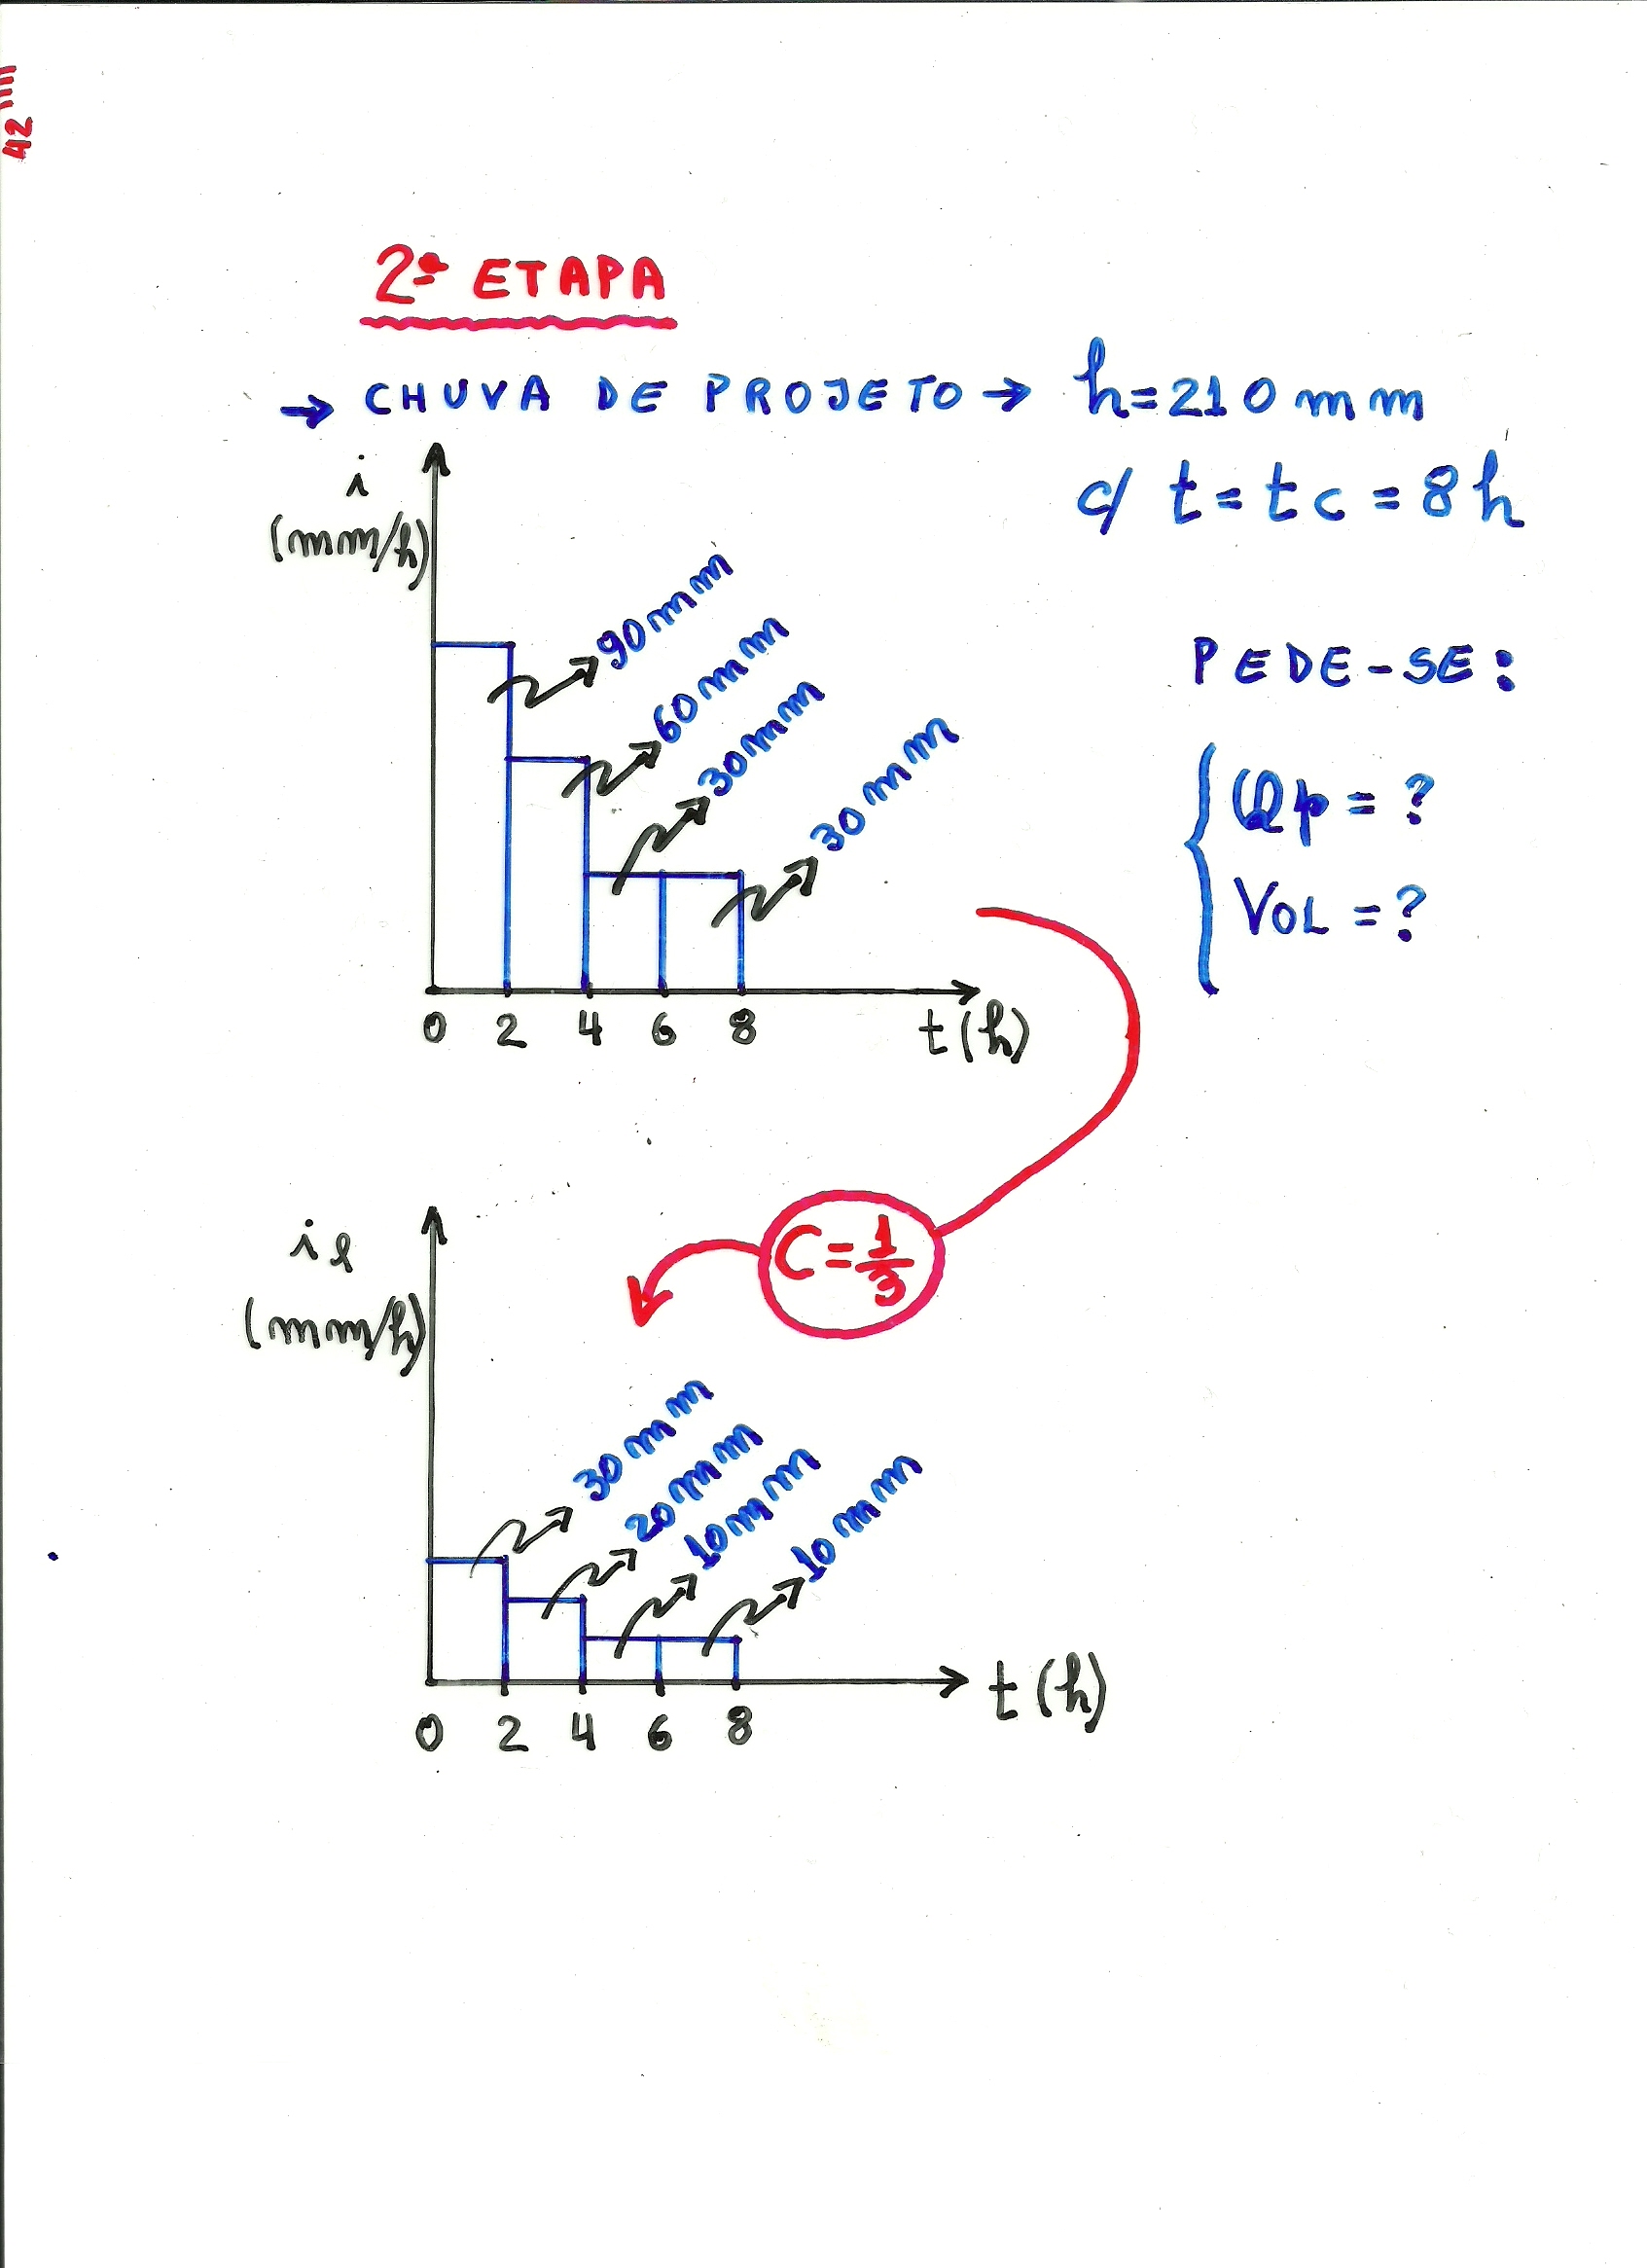 42
2ª ETAPA
→ CHUVA DE PROJETO → h=210mm
c/ t=tc=8h
i
(mm/h)
90mm
60mm
30mm
30mm
0 2 4 6 8 t(h)
PEDE-SE:
Qp = ?
VOL = ?
C=1/3
ie
(mm/h)
30mm
20mm
10mm
10mm
0 2 4 6 8 t(h)